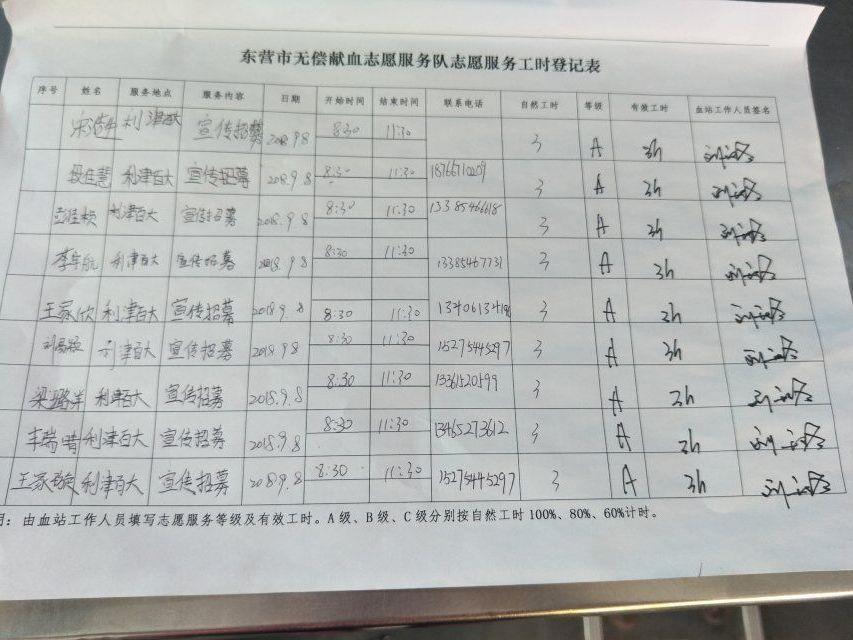 东营市无偿献血志愿服务队志愿服务工时登记表
序号 姓名 服务地点 服务内容 日期 开始时间 结束时间 联系电话 自然工时 等级 有效工时 血站工作人员签名
利津百大 宣传招募 2018.9.8 8:30 11:30 3 A 3h
段佳慧 利津百大 宣传招募 2018.9.8 8:30 11:30 18766710209 3 A 3h
利津百大 宣传招募 2018.9.8 8:30 11:30 13385466618 3 A 3h
李宇航 利津百大 宣传招募 2018.9.8 8:30 11:30 13385467731 3 A 3h
王家欣 利津百大 宣传招募 2018.9.8 8:30 11:30 3 A 3h
利津百大 宣传招募 2018.9.8 8:30 11:30 15275445297 3 A 3h
梁璐洋 利津百大 宣传招募 2018.9.8 8:30 11:30 3 A 3h
丰瑞晴 利津百大 宣传招募 2018.9.8 8:30 11:30 13465273612 3 A 3h
王家璇 利津百大 宣传招募 2018.9.8 8:30 11:30 15275445297 3 A 3h
由血站工作人员填写志愿服务等级及有效工时。A级、B级、C级分别按自然工时100%、80%、60%计时。